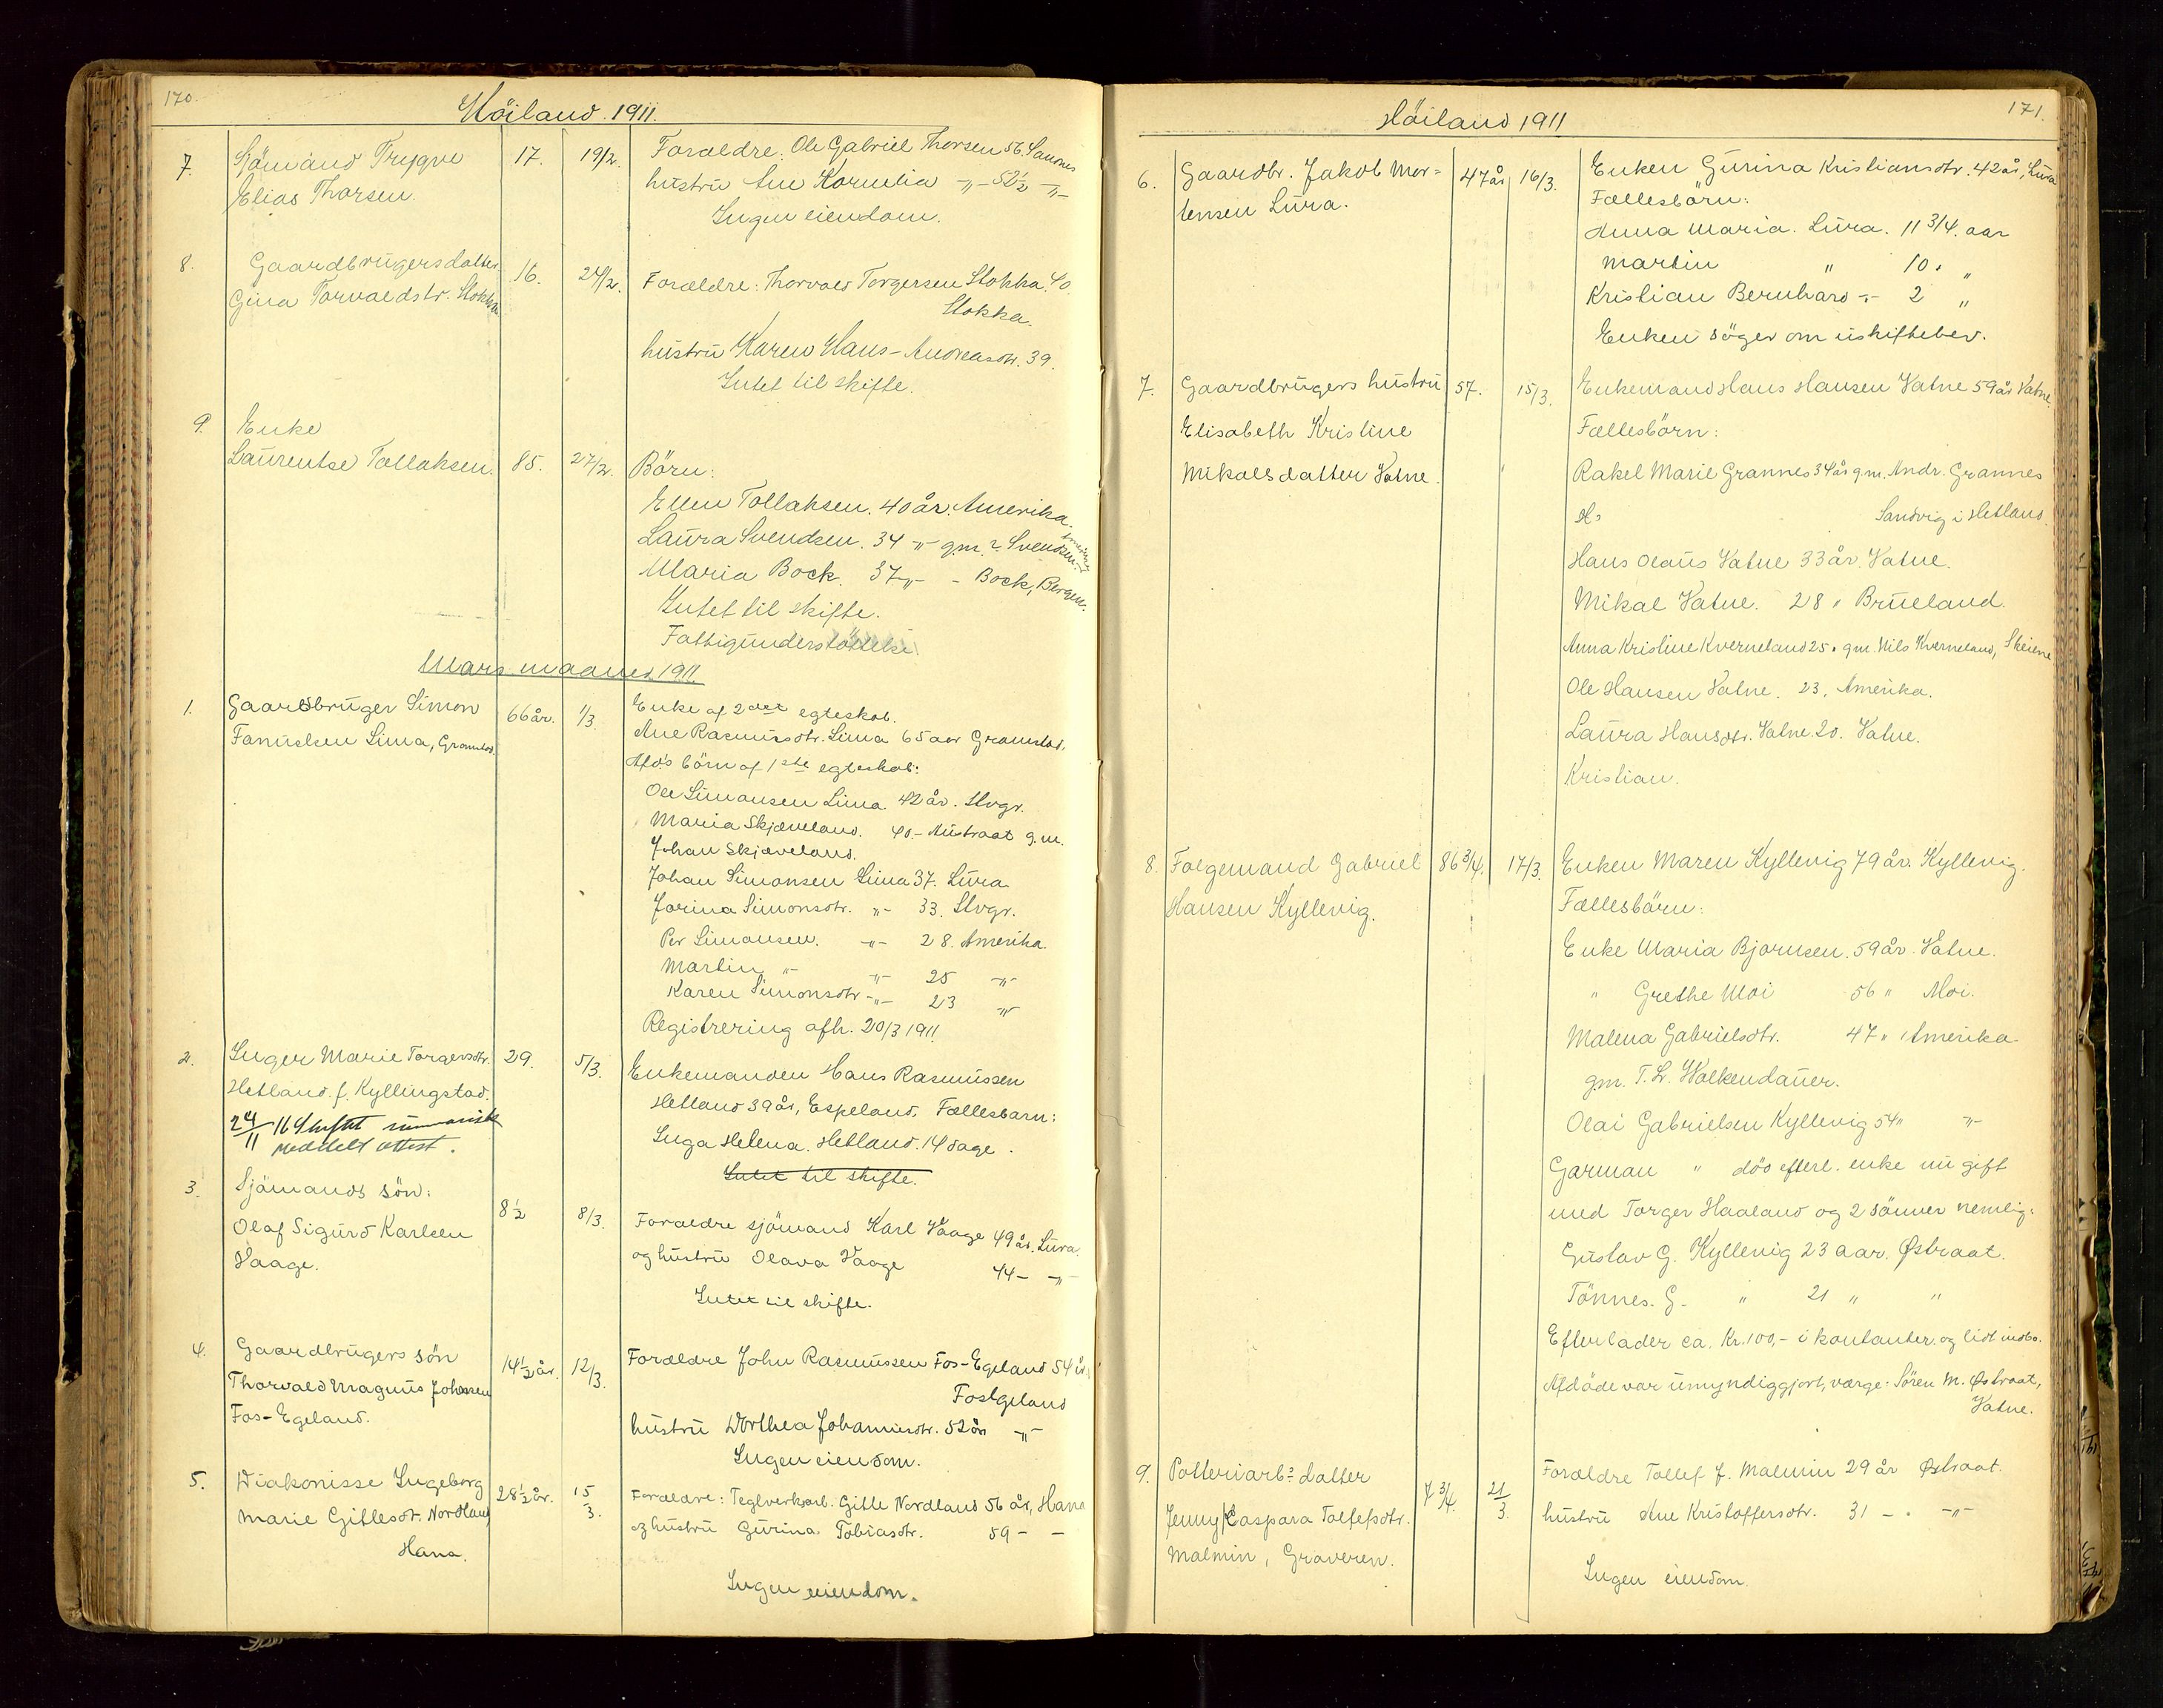 170.
Höiland. 1911.
7. Sjömand Trygve 17. 19/2. Forældre: Ole Gabriel Thorsen 56. Sandnes
Elias Thorsen. hustru Ane Kornelia -"- 52½ -"-
Ingen eiendom.
8. Gaardbrugersdatter 16. 24/2. Forældre: Thorvald Torgersen Stokka 40.
Gina Torvaldstr. Stokka Stokka.
hustru Karen Hans-Andreasdtr. 39.
Intet til skifte.
9. Enke
Laurentse Tollaksen. 85. 27/2. Börn:
Ellen Tollaksen. 40 år. Amerika.
Laura Svendsen. 34 -"- gm. ? Svendsen. Amerika
Maria Bock. 37 -"- - Bock, Bergen.
Intet til skifte.
Fattigunderstöttelse
Mars maaned 1911.
1. Gaardbruger Simon 66 år. 1/3. Enke af 2det egteskab.
Tønnesen Lima, Gramstad. Ane Rasmusdtr. Lima 65 aar Gramstad.
Afds börn af 1ste egteskab:
Ole Simonsen Lima 42 år. Stvgr.
Maria Skjæveland. 40.- Austraat g.m.
Johan Skjæveland.
Johan Simonsen Lima 37. Lura
Jorina Simonsdtr. -"- 33. Stvgr.
Per Simonsen. -"- 28. Amerika.
Martin -"- -"- 25 -"-
Karen Simonsdtr -"- 23 -"-
Registrering afh. 20/3 1911.
2. Inger Marie Torgersdtr. 29. 5/3. Enkemanden Hans Rasmussen
Hetland. f. Kyllingstad. Hetland 39 år, Espeland. Fællesbarn:
24/11 16 skiftet summarisk Inga Helena. Hetland. 14 dage.
meddelt attest. Intet til skifte.
3. Sjömands sön: 8½ 8/3. Forældre sjömand Karl Vaage 49 år. Lura.
Olaf Sigurd Karlsen og hustru Olava Vaage 44 - -"-
Vaage. Intet til skifte.
4. Gaardbrugers sön 14½ år. 12/3. Forældre John Rasmussen Fos-Egeland 54 år.
Thorvald Magnus Johnsen Fosegeland
Fos-Egeland. hustru Dorthea Johannesdtr. 52 år -"-
Ingen eiendom.
5. Diakonisse Ingeborg 28½ år. 15/3. Forældre: Teglverksarb. Gitle Nordland 56 år, Hana
Marie Gitlesdtr. Nordland, og hustru Gurina Tobiasdtr. 59 - -
Hana. Ingen eiendom.
171.
Höiland 1911
6. Gaardbr. Jakob Mor= 47 år 16/3. Enken Gurina Kristiansdtr. 42 år, Lura
tensen Lura. Fællesbörn:
Anna Maria. Lura. 11 3/4. aar
Martin " 10. "
Kristian Bernhard -"- 2 "
Enken söger om uskiftebev.
7. Gaardbrugers hustru 57. 15/3. Enkemand Hans Hansen Vatne 59 år Vatne.
Elisabeth Kristine Fællesbörn:
Mikalsdatter Vatne. Rakel Marie Grannes 34 år g.m. Andr. Grannes
Sandvig i Hetland.
Hans Olaus Vatne 33 år. Vatne.
Mikal Vatne. 28 " Brueland.
Anna Kristine Kverneland 25. gm. Nils Kverneland, Skeiene
Ole Hansen Vatne. 23. Amerika.
Laura Hansdtr. Vatne. 20. Vatne.
Kristian.
8. Folgemand Gabriel 86 3/4. 17/3. Enken Maren Kyllevig 79 år. Kyllevig.
Hansen Kyllevig. Fællesbörn:
Enke Maria Bjornsen. 59 år. Vatne.
" Grethe Moi 56 " Moi.
Malena Gabrielsdtr. 47 " Amerika
gm. T. L. Walkendauer.
Olai Gabrielsen Kyllevig 54 " -"-
Garman " död efterl. enke nu gift
med Torger Haaland og 2 sönner nemlig:
Gustav G. Kyllevig 23 aar. Østraat.
Tönnes. G. " 21 " "
Efterlader ca. Kr. 100,- i kontanter og lidt indbo.
Afdöde var umyndiggjort, værge: Sören M. Østraat,
Vatne.
9. Potteriarb.s datter 7 3/4. 21/3. Forældre Tollef J. Malmin 29 år Østraat.
Jenny Caspara Tollefsdtr. hustru Ane Kristoffersdtr. 31 - . -"-
Malmin, Graveren. Ingen eiendom.